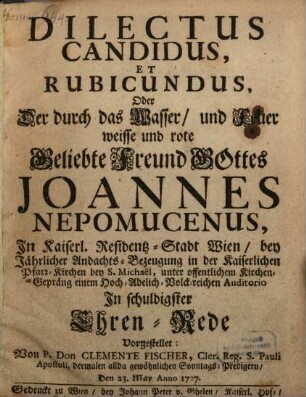 DILECTUS
CANDIDUS,
ET
RUBICUNDUS,
Oder
Der durch das Wasser/ und Feuer
weisse und rote
Geliebte Freund GOttes
JOANNES
NEPOMUCENUS,
In Kaiserl. Residentz-Stadt Wien/ bey
Jährlicher Andachts-Bezeugung in der Kaiserlichen
Pfarr-Kirchen bey S. Michaël, unter offentlichem Kirchen-
Gepräng einem Hoch-Adelich-Volckreichen Auditorio
In schuldigster
Ehren-Rede
Vorgestellet:
Von P. Don CLEMENTE FISCHER, Cler. Reg. S. Pauli
Apostoli, dermalen allda gewöhnlichen Sonntags-Predigern/
Den 23. May Anno
Gedruckt zu Wien/ bey Johann Peter v. Ghelen/ Kaiserl. Hof-